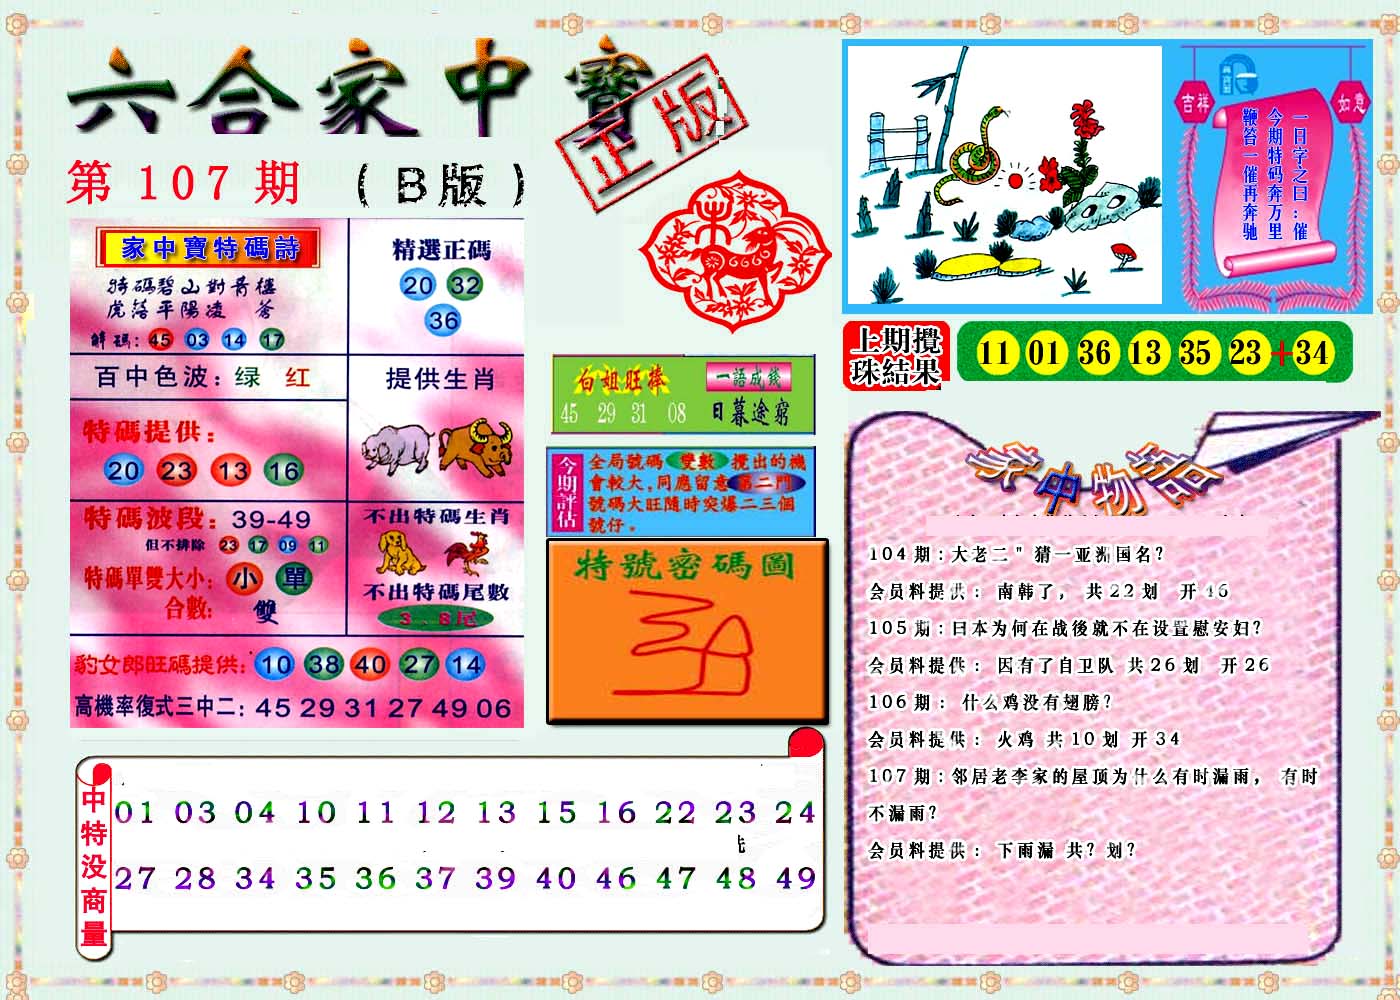 六合家中寶
正版
第107期
(B版)
家中寶特碼詩
特碼碧山對青樓
虎落平陽凌 蒼
解碼: 45 03 14 17
精選正碼
20 32
36
百中色波: 绿 红
提供生肖
特碼提供:
20 23 13 16
特碼波段: 39-49
但不排除 23 17 09 11
特碼單雙大小: 小 單
合數: 雙
不出特碼生肖
不出特碼尾數
3、8尾
豹女郎旺碼提供: 10 38 40 27 14
高機率復式三中二: 45 29 31 27 49 06
白姐旺棒
45 29 31 08
一語成錢
日暮途窮
今期評估
全局號碼 雙數 攪出的機
會較大,同應留意 第二門
號碼大旺隨時突爆二三個
號仔。
特號密碼圖
吉祥
如意
一日字之曰:催
今期特码奔万里
鞭笞一催再奔驰
上期攪
珠結果
11 01 36 13 35 23+34
家中物語
104期:大老二"猜一亚洲国名?
会员料提供: 南韩了, 共22划 开46
105期:日本为何在战後就不在设置慰安妇?
会员料提供: 因有了自卫队 共26划 开26
106期: 什么鸡没有翅膀?
会员料提供: 火鸡 共10划 开34
107期:邻居老李家的屋顶为什么有时漏雨, 有时
不漏雨?
会员料提供: 下雨漏 共?划?
中特没商量
01 03 04 10 11 12 13 15 16 22 23 24
27 28 34 35 36 37 39 40 46 47 48 49